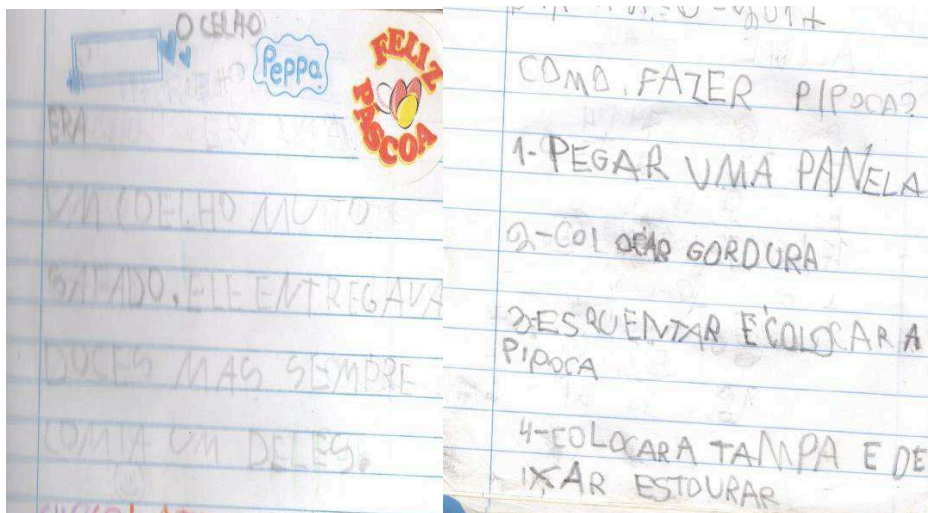 O CELHO
Peppa
FELIZ
PÁSCOA
ERA
UM COELHO MUITO
SAFADO, ELE ENTREGAVA
DOCES MAS SEMPRE
COMIA UM DELES.
2017
COMO FAZER PIPOCA?
1- PEGAR UMA PANELA
2- COLOCAR GORDURA
3- ESQUENTAR E COLOCAR A
PIPOCA
4- COLOCAR A TAMPA E DE
IXAR ESTOURAR